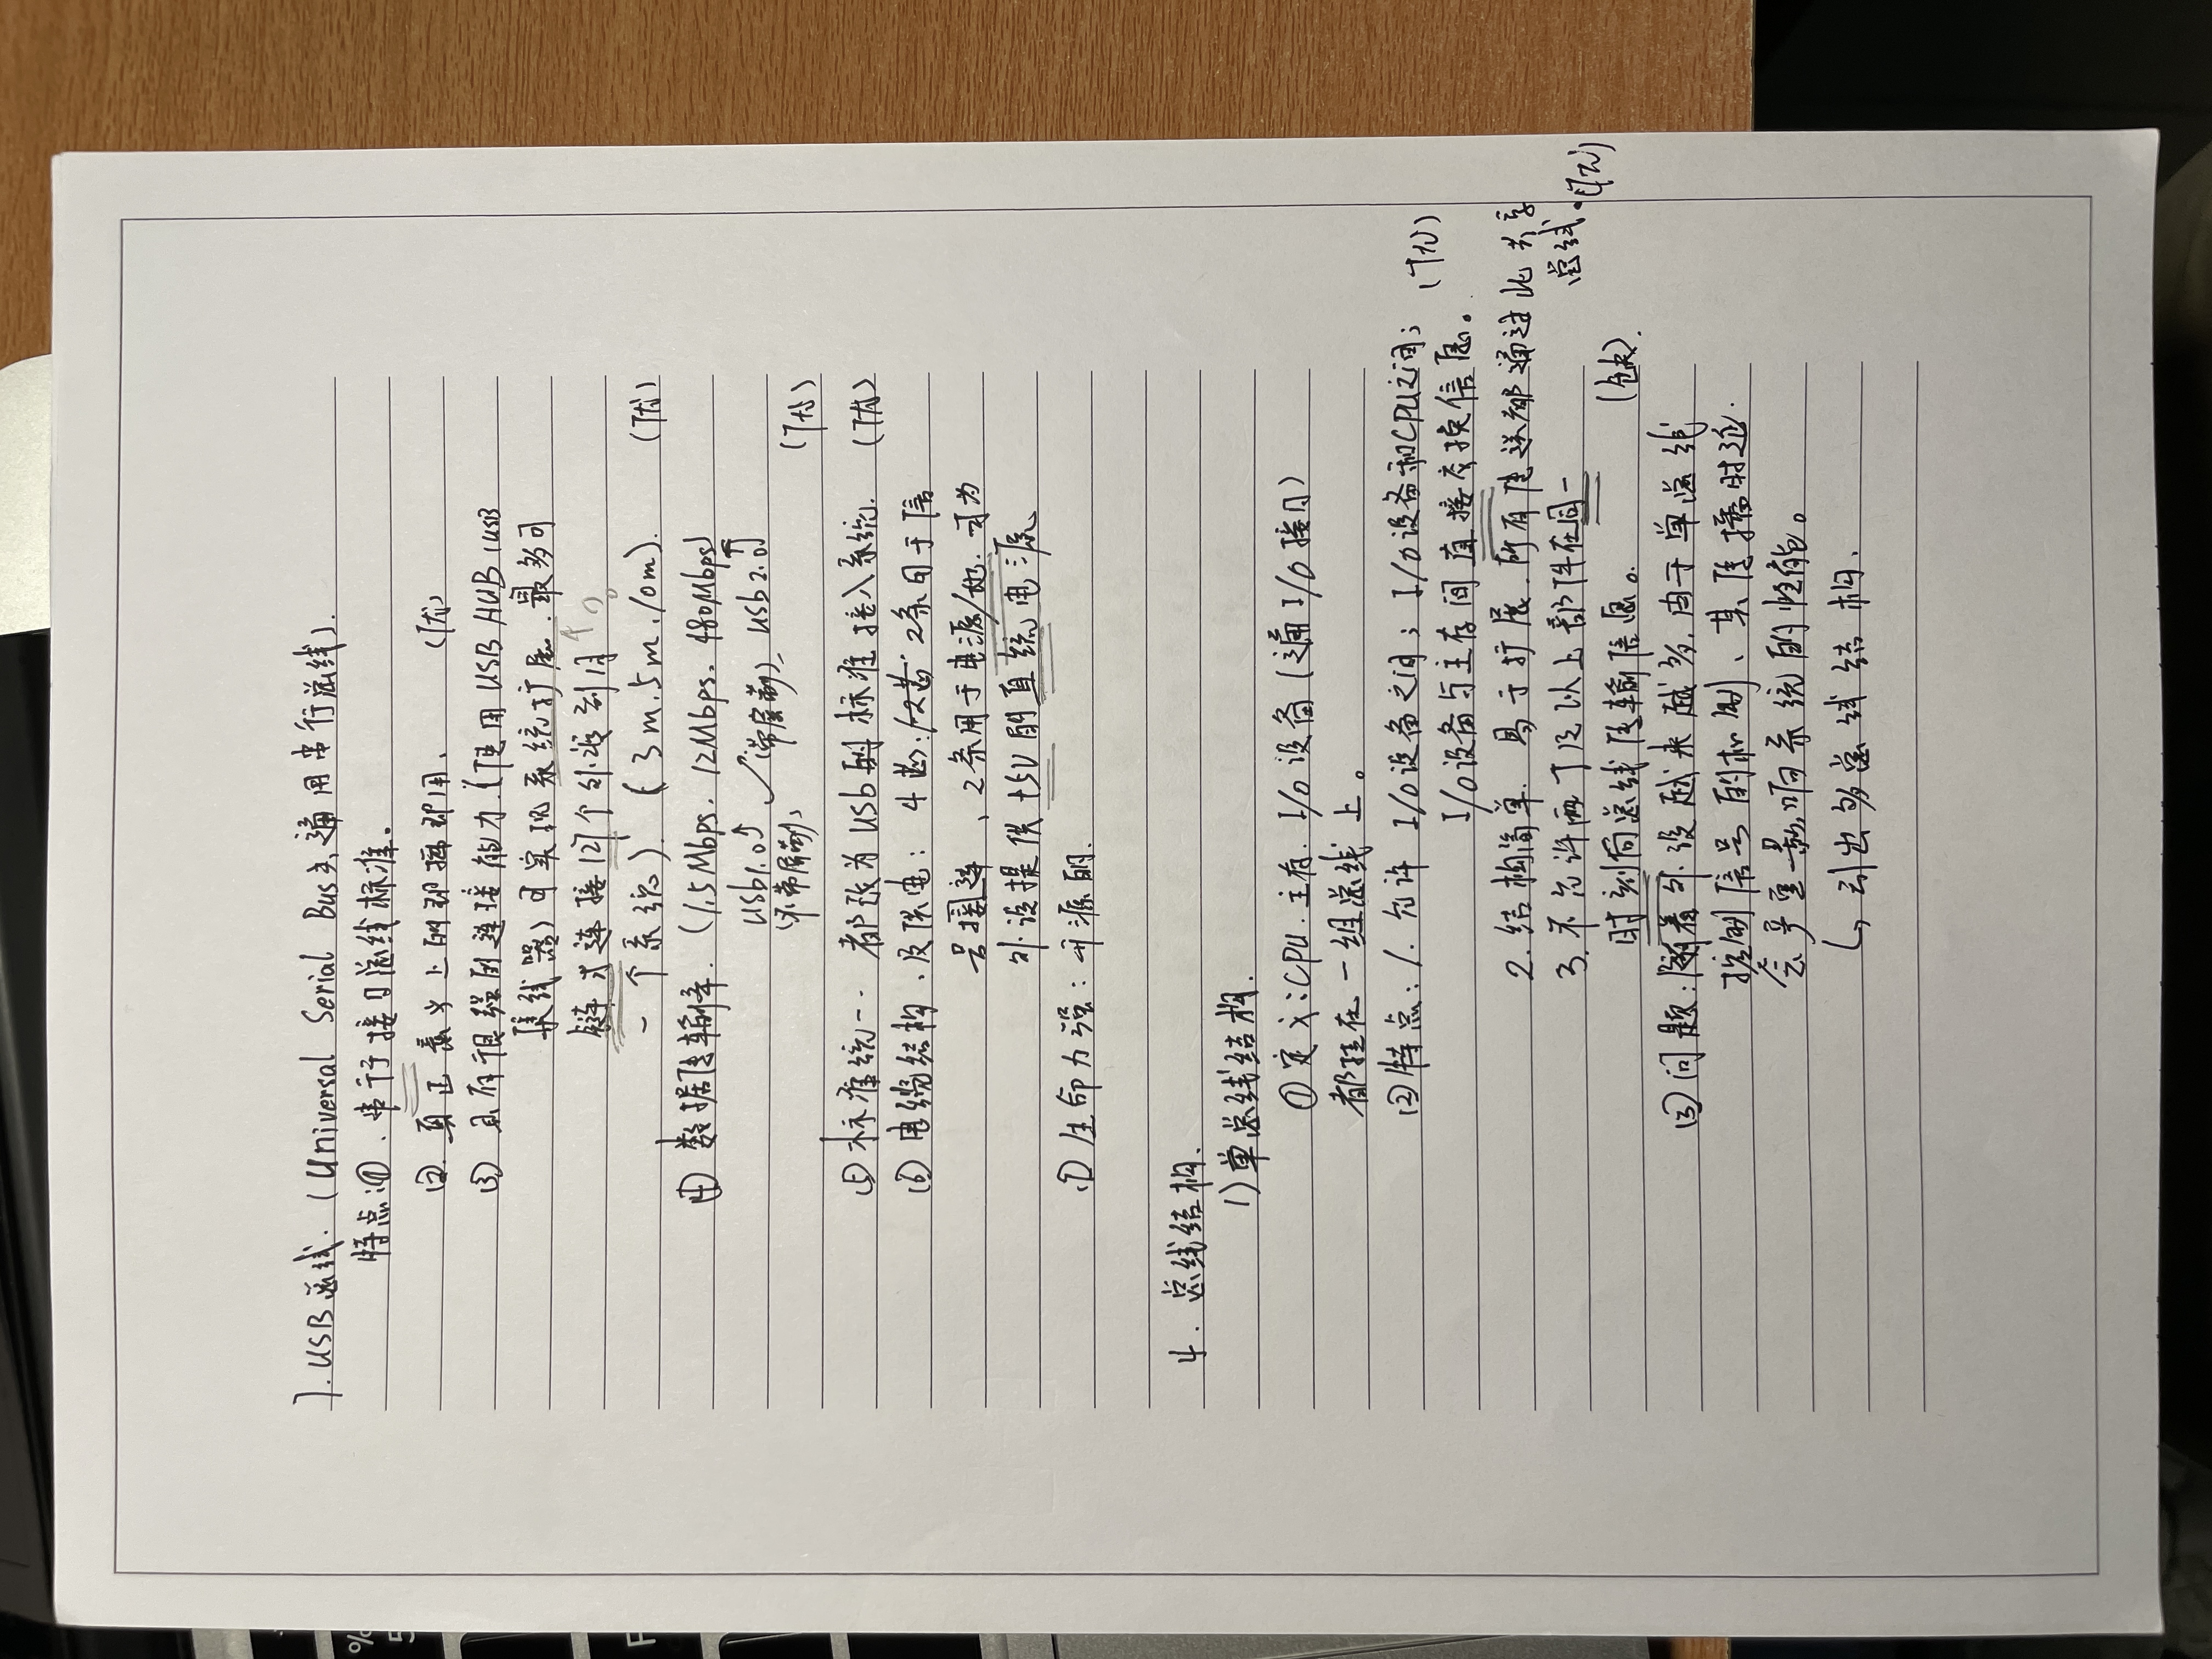 7. USB总线. (Universal Serial Bus, 通用串行总线).
特点:① . 串行接口总线标准。
② 真正意义上的即插即用. (优)
③ 具有很强的连接能力. (使用USB HUB (USB
集线器) 可实现系统扩展. 最多可
链式连接127个外设到同
一个系统). (3m. 5m. 10m). (优)
④ 数据传输率. (1.5Mbps. 12Mbps. 480Mbps)
USb1.0↑ ↗(带屏蔽) USb2.0↑
(不带屏蔽) (优)
⑤ 标准统一. 都改为USb的标准接入系统. (优)
⑥ 电缆结构. 及供电: 4芯: 2条用于信
号连, 2条用于电源/地. 可为
外设提供+5V的直流电源
⑦ 生命力强: 开源的.
4. 总线结构.
1) 单总线结构.
① 定义: CPU. 主存. I/O设备 (通I/O接口)
都挂在一组总线上。
② 特点: 1. 允许 I/O设备之间; I/O设备和CPU之间; (优)
I/O设备与主存间直接交换信息。
2. 结构简单. 易于扩展. 所有传送都通过此共享
总线. (优)
3. 不允许两个及以上部件在同一
时刻向总线传输信息。 (缺).
③ 问题: 随着外设越来越多, 由于单总线
控制信号的机制、其传播时延.
会严重影响系统的性能。
↳ 引出多总线结构.